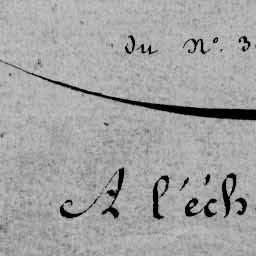 du N°. 3
A l'éch